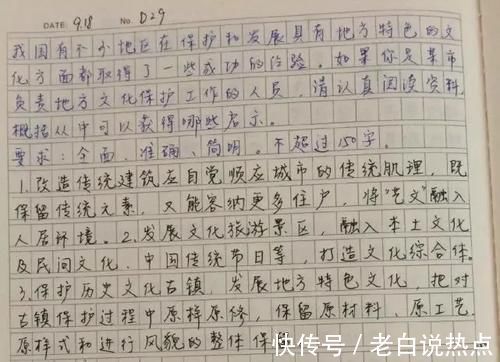 DATE: 9.18 No. D29
我国有不少地区在保护和发展具有地方特色的文
化方面都取得了一些成功的经验。如果你是某市
负责地方文化保护工作的人员,请认真阅读资料,
概括从中可以获得哪些启示。
要求:全面、准确、简明。不超过150字。
1.改造传统建筑应自觉顺应城市的传统肌理,既
保留传统元素,又能容纳更多住户,将"艺文"融入
人居环境。2.发展文化旅游景区,融入本土文化
及民间文化、中国传统节日等,打造文化综合体。
3.保护历史文化古镇,发展地方特色文化,把对
古镇保护过程中原样原修,保留原材料、原工艺、
原样式和进行风貌的整体保
快传号/老白说热点